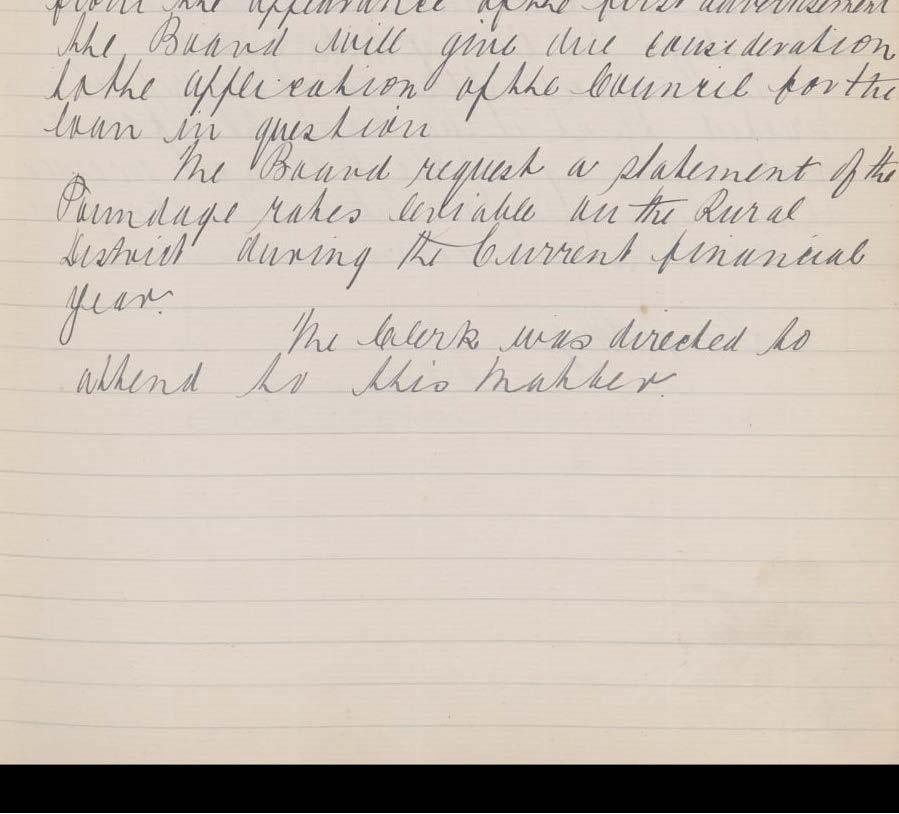 from the appearance of the first advertisement
the Board will give due consideration
to the application of the Council for the
loan in question
The Board request a statement of the
Poundage rates leviable on the Rural
District during the Current financial
year.
The Clerk was directed to
attend to this matter.